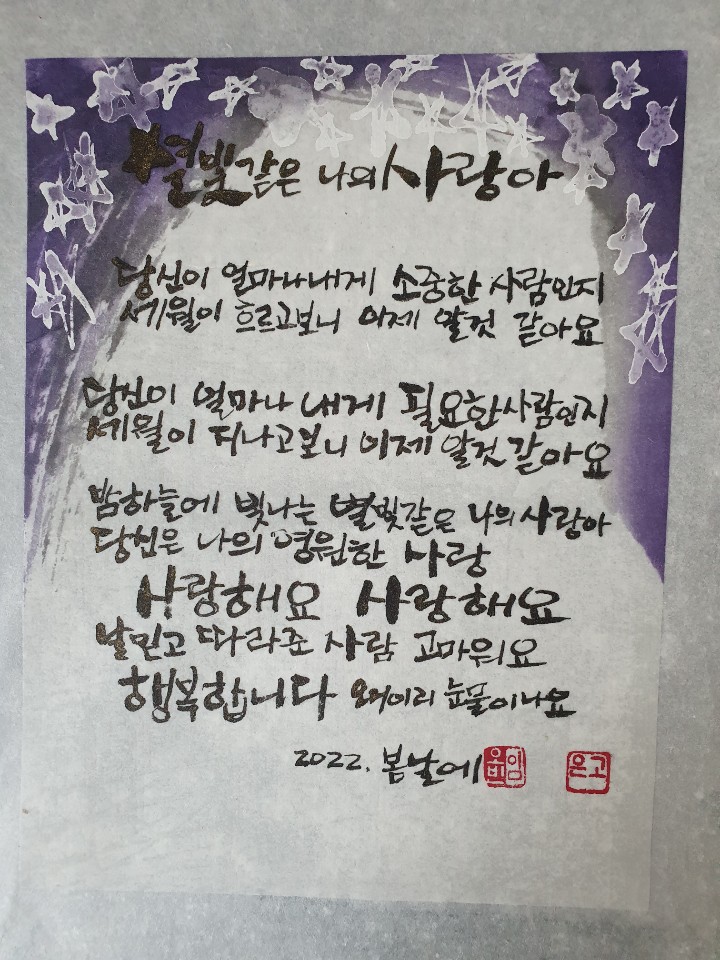 별빛같은 나의 사랑아
당신이 얼마나 내게 소중한 사람인지
세월이 흐르고보니 이제 알것 같아요
당신이 얼마나 내게 필요한 사람인지
세월이 지나고보니 이제 알것 같아요
밤하늘에 빛나는 별빛같은 나의 사랑아
당신은 나의 영원한 사랑
사랑해요 사랑해요
날믿고 따라준 사람 고마워요
행복합니다 왜이리 눈물이나요
2022. 봄날에
은고